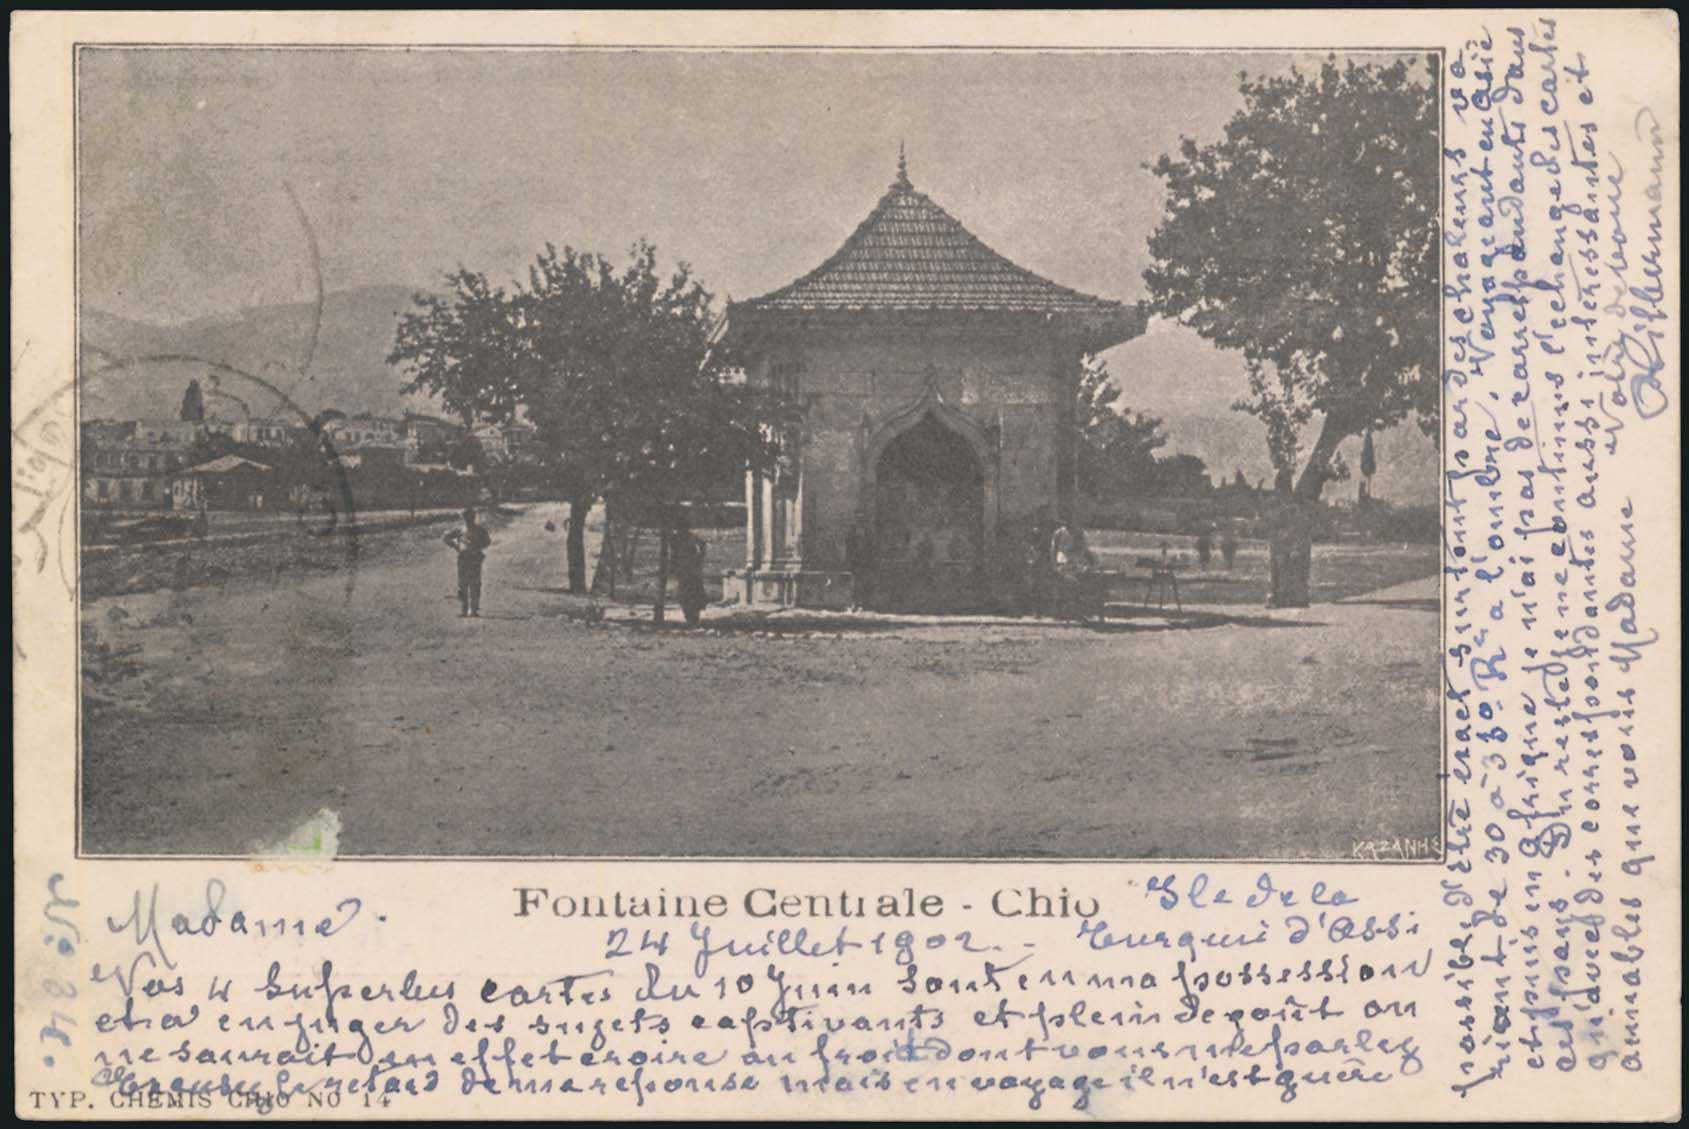 KAZANHS
Fontaine Centrale - Chio
Isle de la
Turquie d'Assi
Madame.
24 Juillet 1902.-
Vos 4 superbes cartes du 10 Juin sont en ma possession
et a en juger des sujets captivants et plein de goût on
ne saurait en effet croire au froid dont vous me parlez
Excusez le retard de ma reponse mais en voyage il n'est guere
TYP. CHEMIS CHIO NO 14
possible d'être exact surtout par des chaleurs va
riant de 30 à 35o Rr a l'ombre. Voyageant en Asie
et puis en Afrique je n'ai pas de correspondants dans
ces pays. Du reste je ne continue l'echange des cartes
qu'avec des correspondantes aussi interessantes et
aimables que vous Madame
Votre devoue
Silbermann